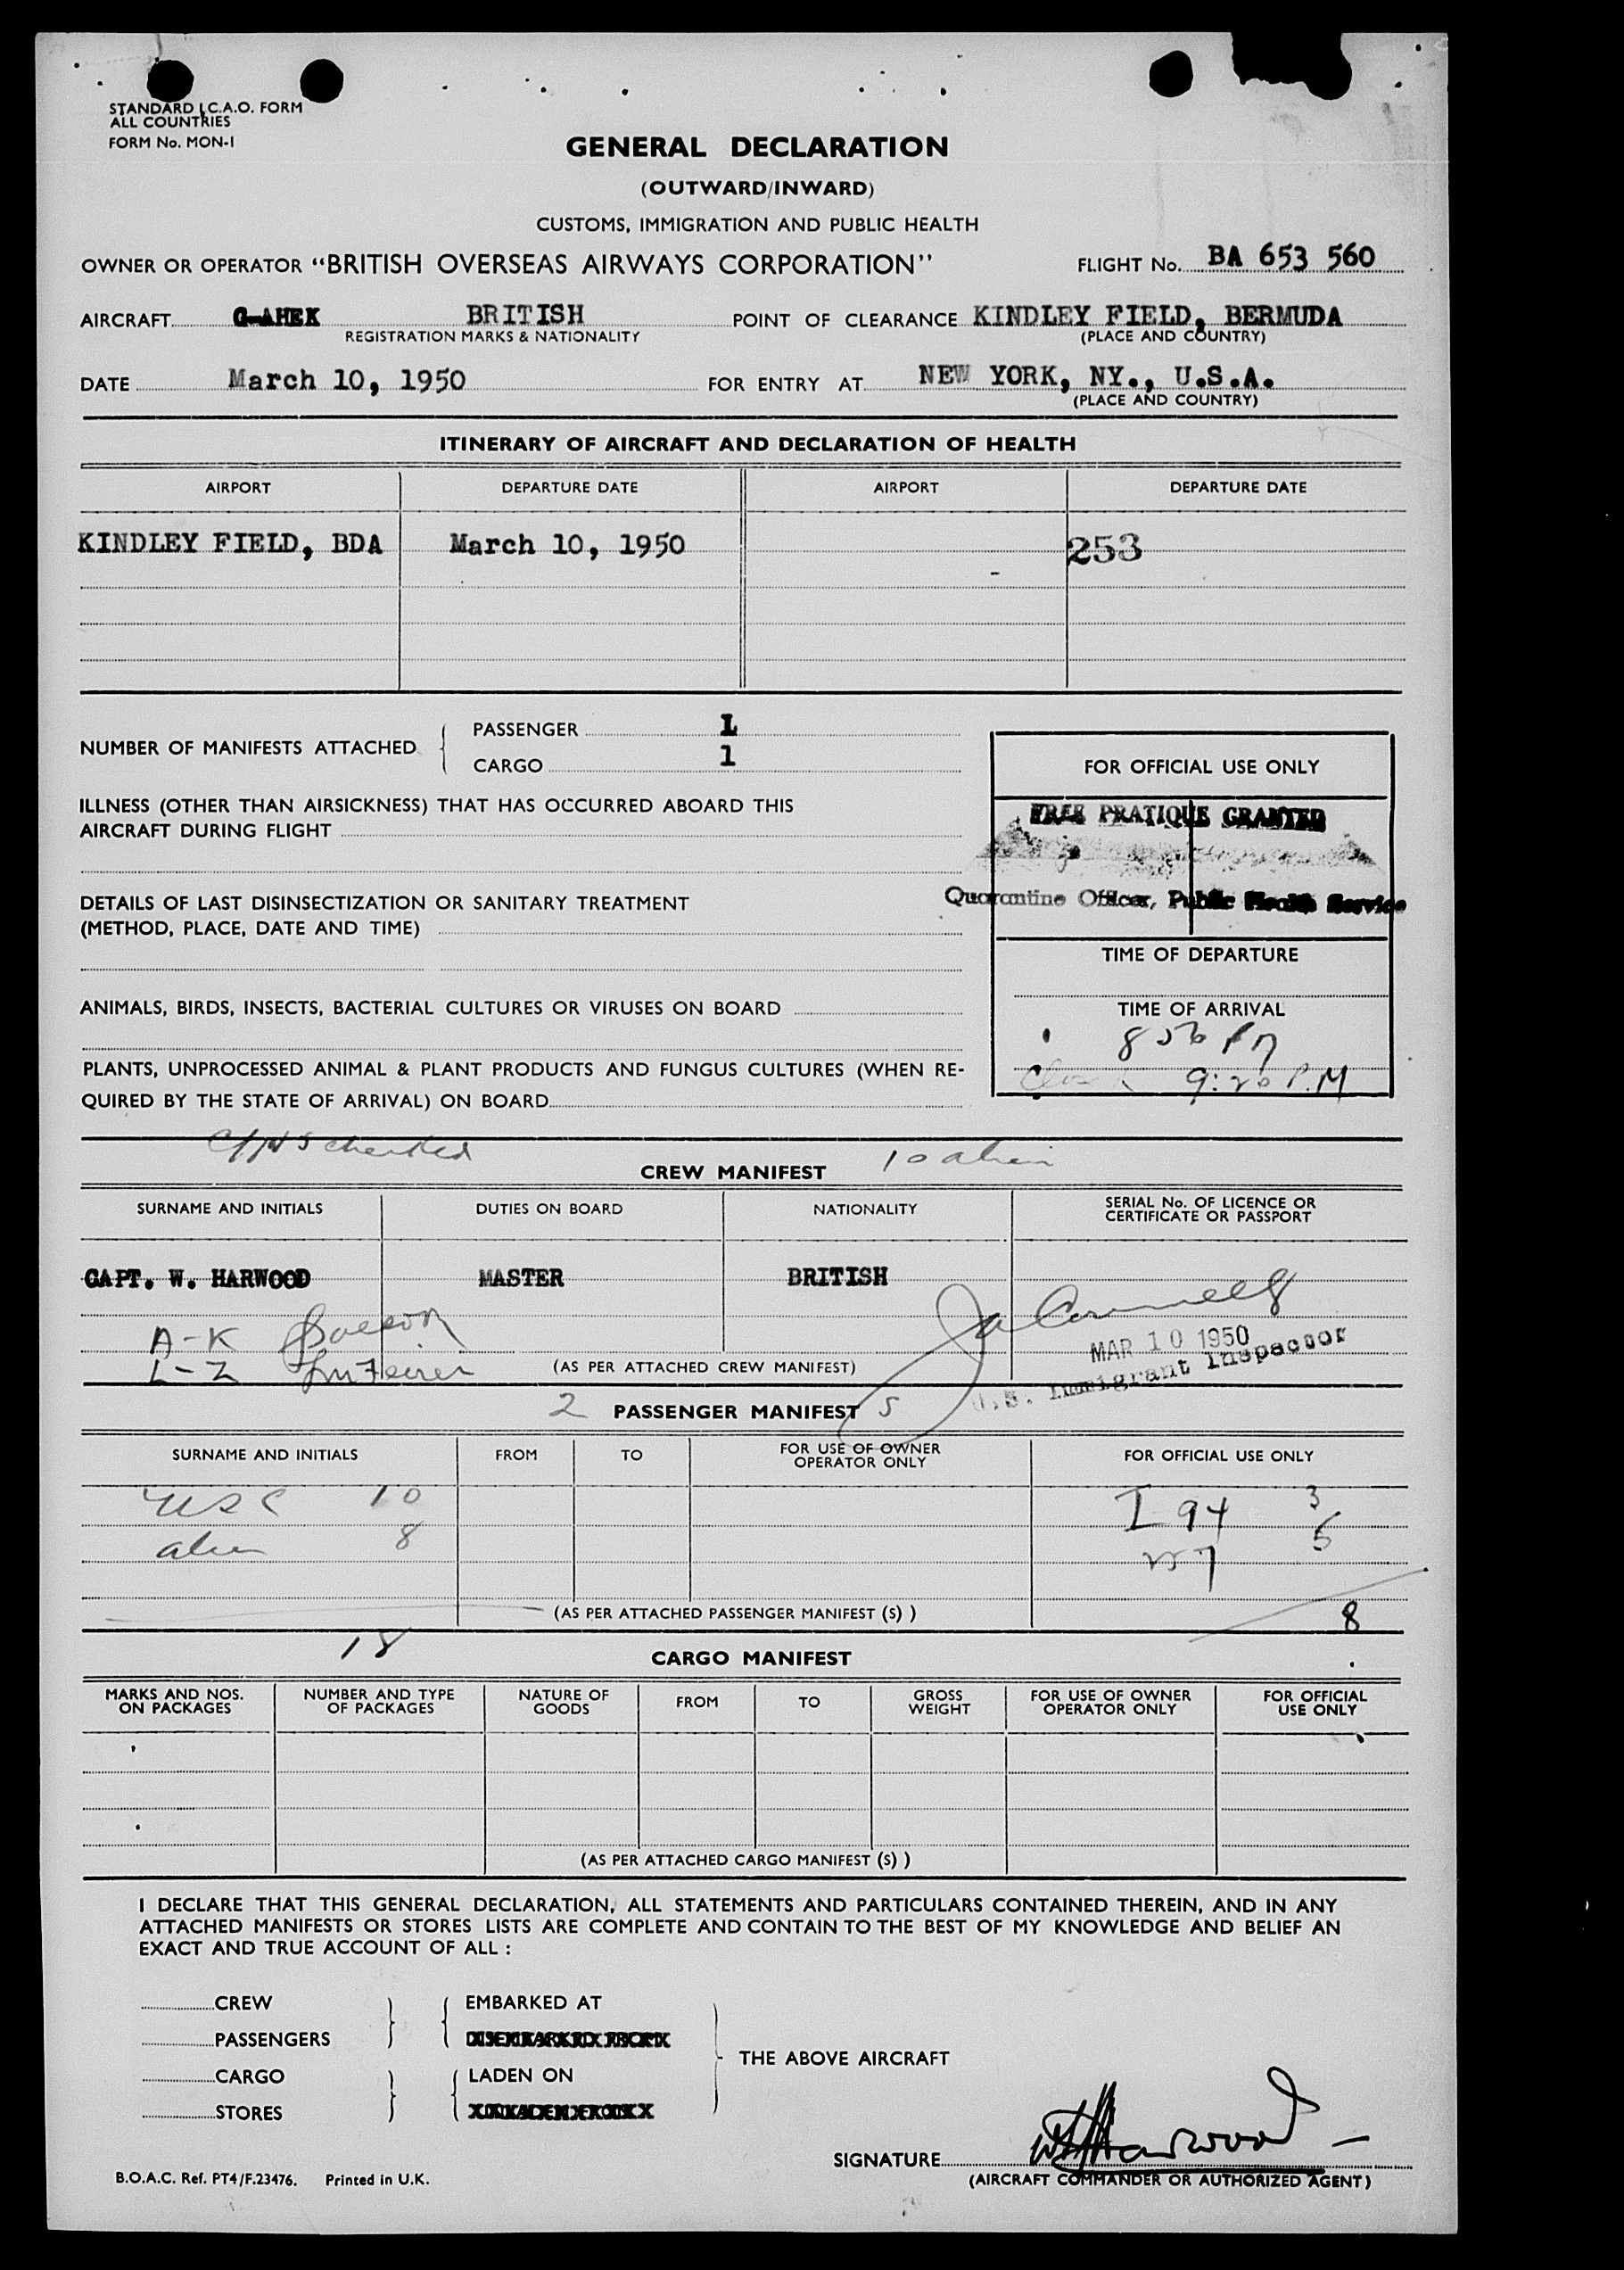 STANDARD I.C.A.O. FORM
ALL COUNTRIES
FORM No. MON-1
GENERAL DECLARATION
(OUTWARD/INWARD)
CUSTOMS, IMMIGRATION AND PUBLIC HEALTH
OWNER OR OPERATOR "BRITISH OVERSEAS AIRWAYS CORPORATION" FLIGHT No. BA 653 560
AIRCRAFT G-AHEK BRITISH POINT OF CLEARANCE KINDLEY FIELD, BERMUDA
REGISTRATION MARKS & NATIONALITY (PLACE AND COUNTRY)
DATE March 10, 1950 FOR ENTRY AT NEW YORK, NY., U.S.A.
(PLACE AND COUNTRY)
ITINERARY OF AIRCRAFT AND DECLARATION OF HEALTH
AIRPORT DEPARTURE DATE AIRPORT DEPARTURE DATE
KINDLEY FIELD, BDA March 10, 1950 253
NUMBER OF MANIFESTS ATTACHED
PASSENGER 1
CARGO 1
FOR OFFICIAL USE ONLY
ILLNESS (OTHER THAN AIRSICKNESS) THAT HAS OCCURRED ABOARD THIS
AIRCRAFT DURING FLIGHT
FREE PRATIQUE GRANTED
DETAILS OF LAST DISINSECTIZATION OR SANITARY TREATMENT
(METHOD, PLACE, DATE AND TIME)
Quarantine Officer, Public Health Service
TIME OF DEPARTURE
ANIMALS, BIRDS, INSECTS, BACTERIAL CULTURES OR VIRUSES ON BOARD
TIME OF ARRIVAL
8 56 PM
PLANTS, UNPROCESSED ANIMAL & PLANT PRODUCTS AND FUNGUS CULTURES (WHEN RE-
QUIRED BY THE STATE OF ARRIVAL) ON BOARD
9:20 P.M
checked
CREW MANIFEST 10 alien
SURNAME AND INITIALS DUTIES ON BOARD NATIONALITY SERIAL No. OF LICENCE OR
CERTIFICATE OR PASSPORT
CAPT. W. HARWOOD MASTER BRITISH
A-K
L-Z
(AS PER ATTACHED CREW MANIFEST)
MAR 10 1950
U.S. Immigrant Inspector
2 PASSENGER MANIFEST 5
SURNAME AND INITIALS FROM TO FOR USE OF OWNER
OPERATOR ONLY FOR OFFICIAL USE ONLY
USC 10 I 94 3
alien 8 5
(AS PER ATTACHED PASSENGER MANIFEST (S) ) 8
18
CARGO MANIFEST
MARKS AND NOS.
ON PACKAGES NUMBER AND TYPE
OF PACKAGES NATURE OF
GOODS FROM TO GROSS
WEIGHT FOR USE OF OWNER
OPERATOR ONLY FOR OFFICIAL
USE ONLY
(AS PER ATTACHED CARGO MANIFEST (S) )
I DECLARE THAT THIS GENERAL DECLARATION, ALL STATEMENTS AND PARTICULARS CONTAINED THEREIN, AND IN ANY
ATTACHED MANIFESTS OR STORES LISTS ARE COMPLETE AND CONTAIN TO THE BEST OF MY KNOWLEDGE AND BELIEF AN
EXACT AND TRUE ACCOUNT OF ALL :
CREW EMBARKED AT
PASSENGERS
THE ABOVE AIRCRAFT
CARGO LADEN ON
STORES
SIGNATURE W Harwood
(AIRCRAFT COMMANDER OR AUTHORIZED AGENT)
B.O.A.C. Ref. PT4/F.23476. Printed in U.K.